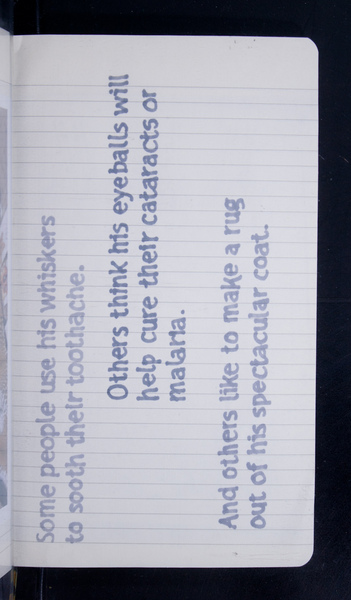 Some people use his whiskers
to sooth their toothache.
Others think his eyeballs will
help cure their cataracts or
malaria.
And others like to make a rug
out of his spectacular coat.